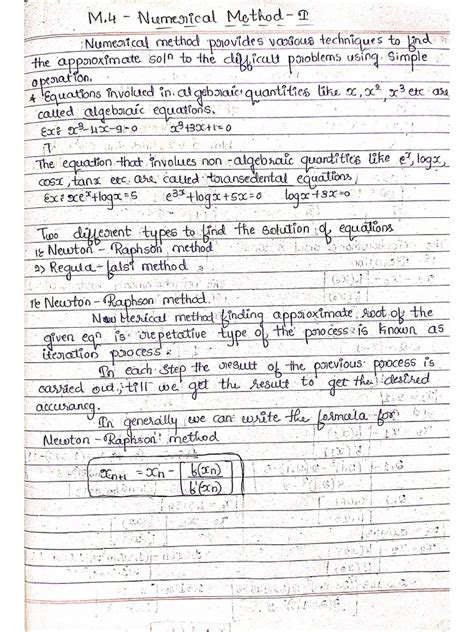 M.4 - Numerical Method - I
Numerical method provides various techniques to find
the approximate solⁿ to the difficult problems using simple
operation.
* Equations involved in algebraic quantities like x, x², x³ etc are
called algebraic equations.
Ex: x²-4x-9=0 x³+3x+1=0
The equation that involves non-algebraic quantities like eˣ, logx,
cosx, tanx etc are called transedental equations,
Ex: xeˣ+logx=5 e³ˣ+logx+5x=0 logx+3x=0
Two different types to find the solution of equations
1) Newton - Raphson method
2) Regula-falsi method
1) Newton - Raphson method.
Numerical method finding approximate root of the
given eqⁿ is repetative type of the process is known as
iteration process.
In each step the result of the previous process is
carried out, till we get the result to get the desired
accurancy.
In generally we can write the formula for
Newton - Raphson method
xₙ₊₁ = xₙ - [f(xₙ) / f'(xₙ)]